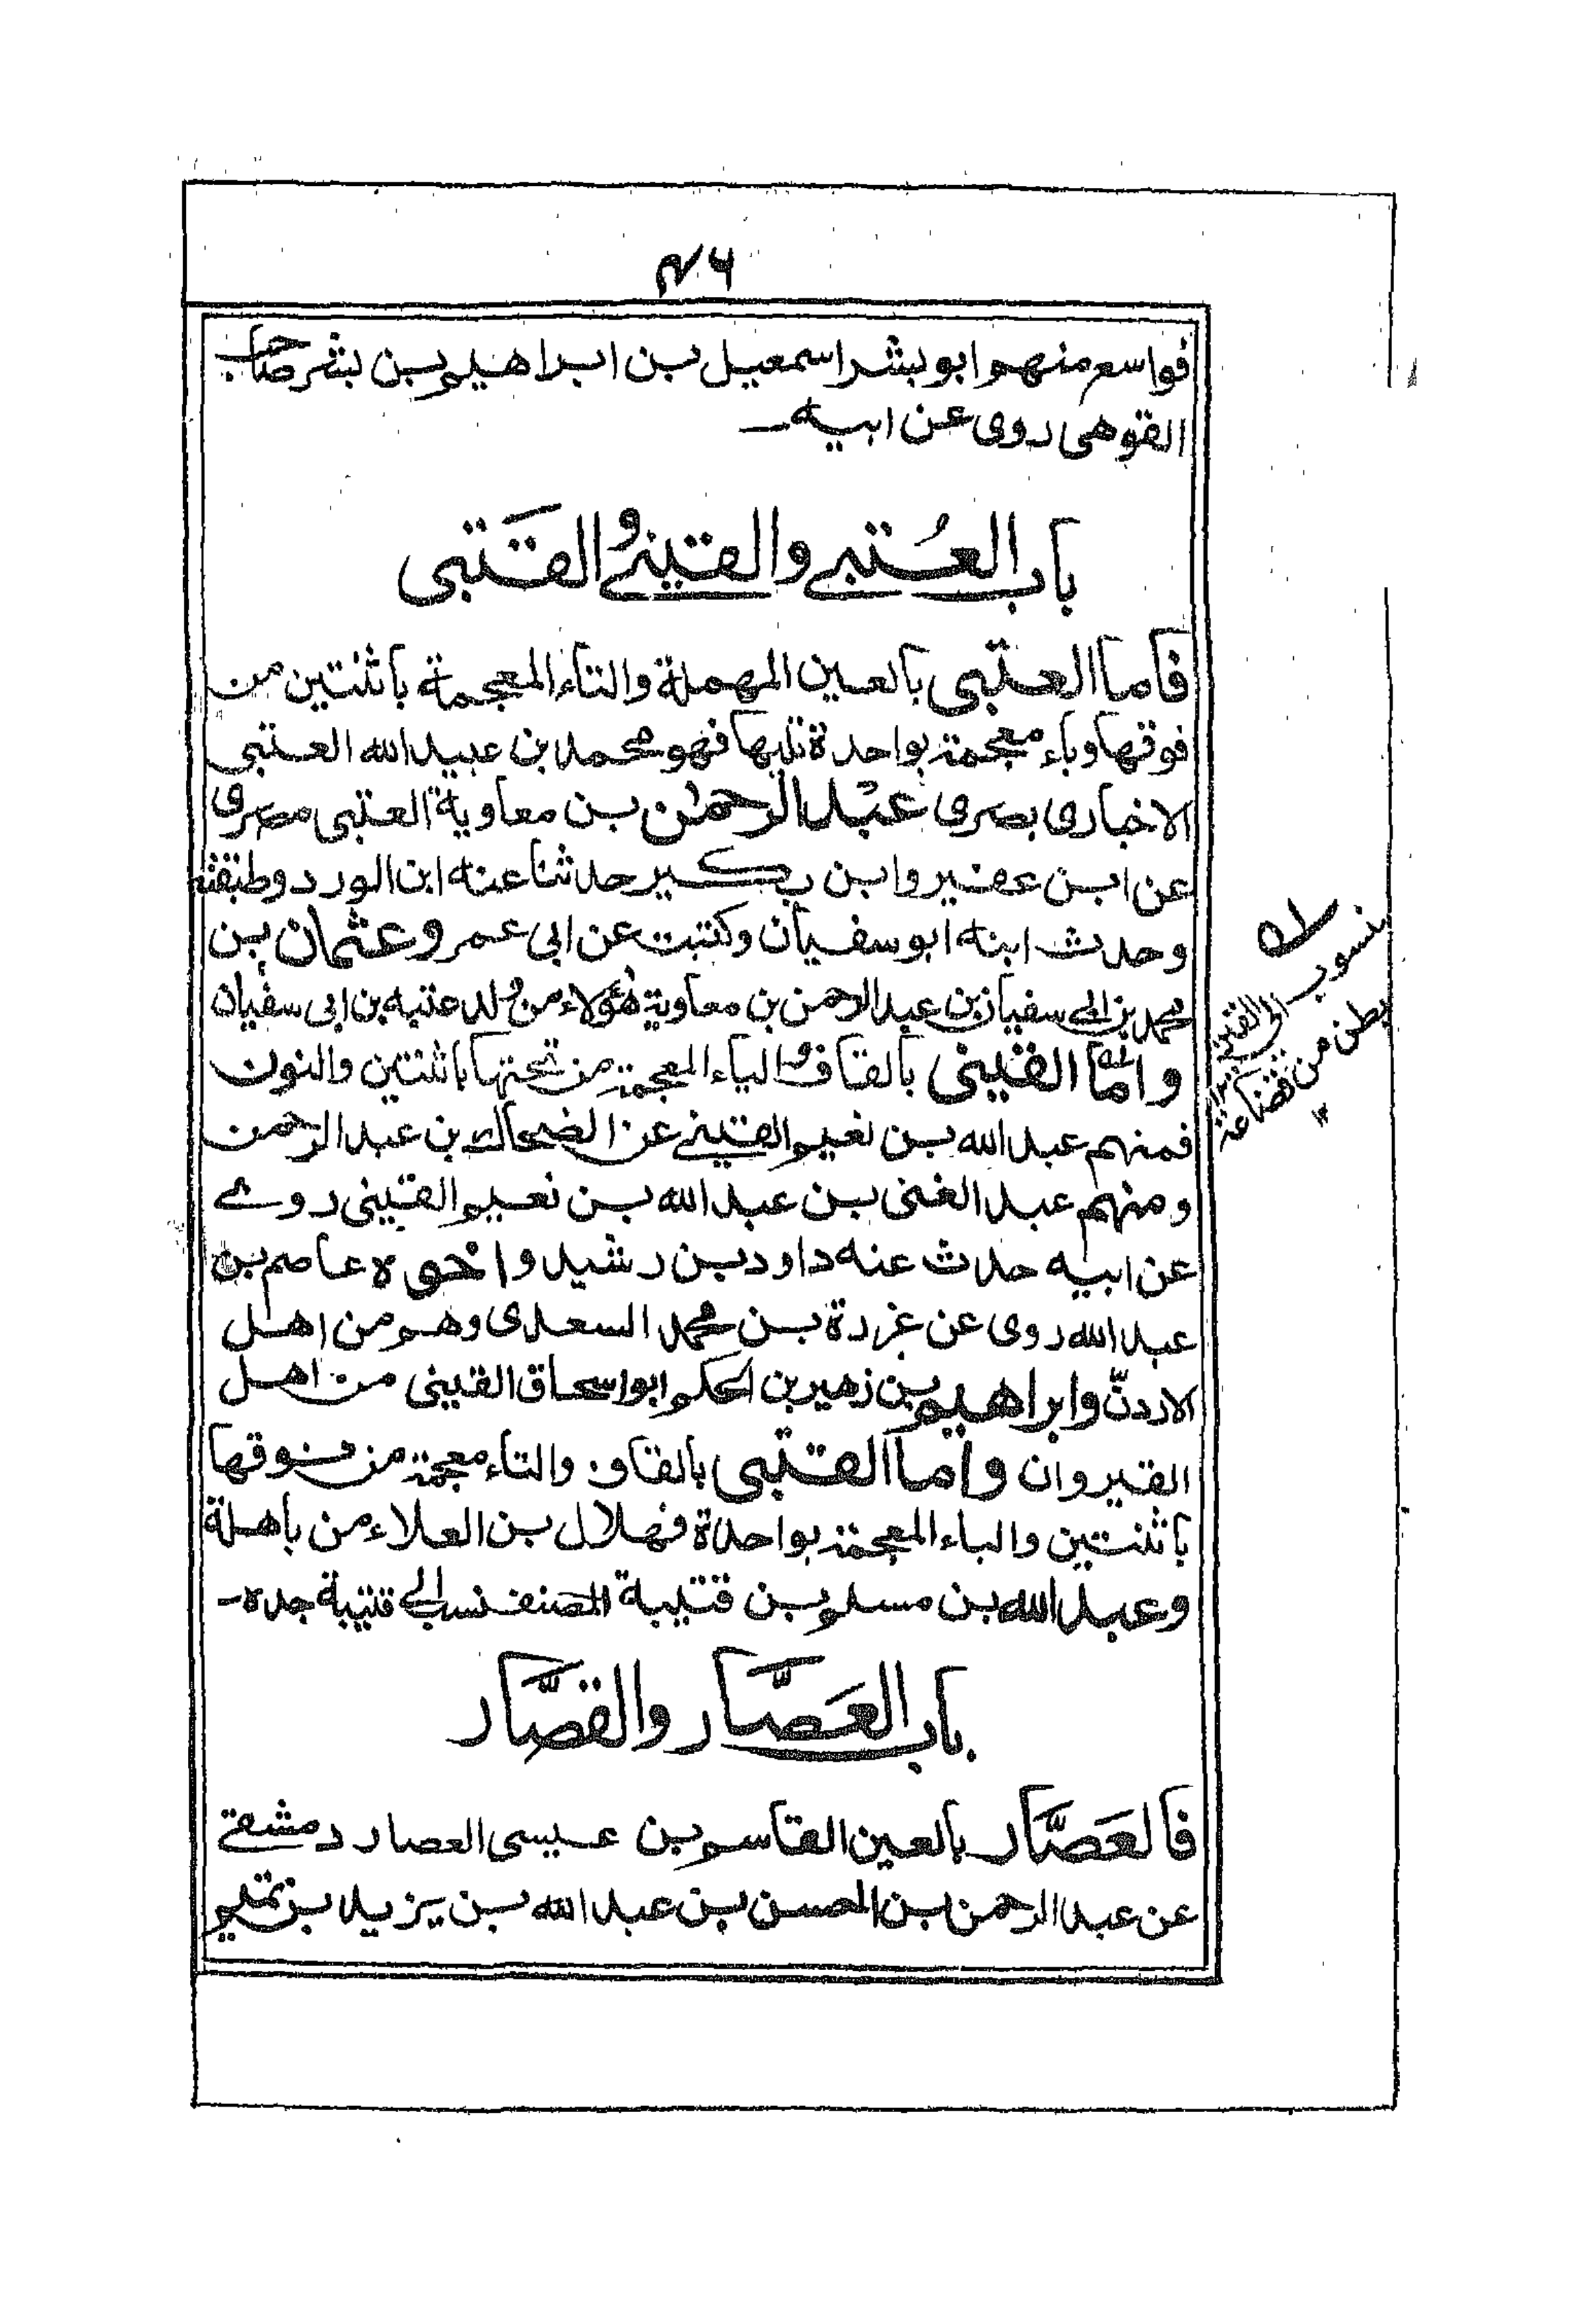 ۴۶
فواسع منهم ابو بشر اسمعيل بن ابراهيم بن بشر صاحب
القوهى روى عن ابيه
باب العُتبے والقينے والقَتبى
فاما العتبى بالعين المهملة والتاء المعجمة باثنتين من
فوقها وباء معجمة بواحدة تليها فهو محمد بن عبيد الله العتبى
الاخبارى بصرى عبد الرحمن بن معاوية العتبى مصرى
عن ابن عفير وابن بكير حدثنا عنه ابن الورد وطبقته
وحدث ابنه ابو سفيان وكتبت عن ابى عمرو عثمان بن
محمد بن ابى سفيان بن عبد الرحمن بن معاوية هؤلاء من ولد عتبه بن ابى سفيان
واما القينى بالقاف والياء المعجمة من تحتها باثنتين والنون
فمنهم عبد الله بن نعيم القينے عن الضحاك بن عبد الرحمن
ومنهم عبد الغنى بن عبد الله بن نعيم القينى روے
عن ابيه حدث عنه داود بن رشيد واخوه عاصم بن
عبد الله روى عن غزرة بن محمد السعدى وهم من اهل
الاردنّ وابراهيم بن زهير بن الحكم ابو اسحاق القينى من اهل
القيروان واما القتبى بالقاف والتاء معجمة من فوقها
باثنتين والباء المعجمة بواحدة فهلال بن العلاء من باهلة
وعبد الله بن مسلم بن قتيبة المصنف نسب الى قتيبة جده
باب العَصَّار والقصَّار
فالعَصَّار بالعين القاسم بن عيسى العصار دمشقے
عن عبد الرحمن بن الحسن بن عبد الله بن يزيد بن تميم
منسوب الى القين
بطن من قضاعة
١٢